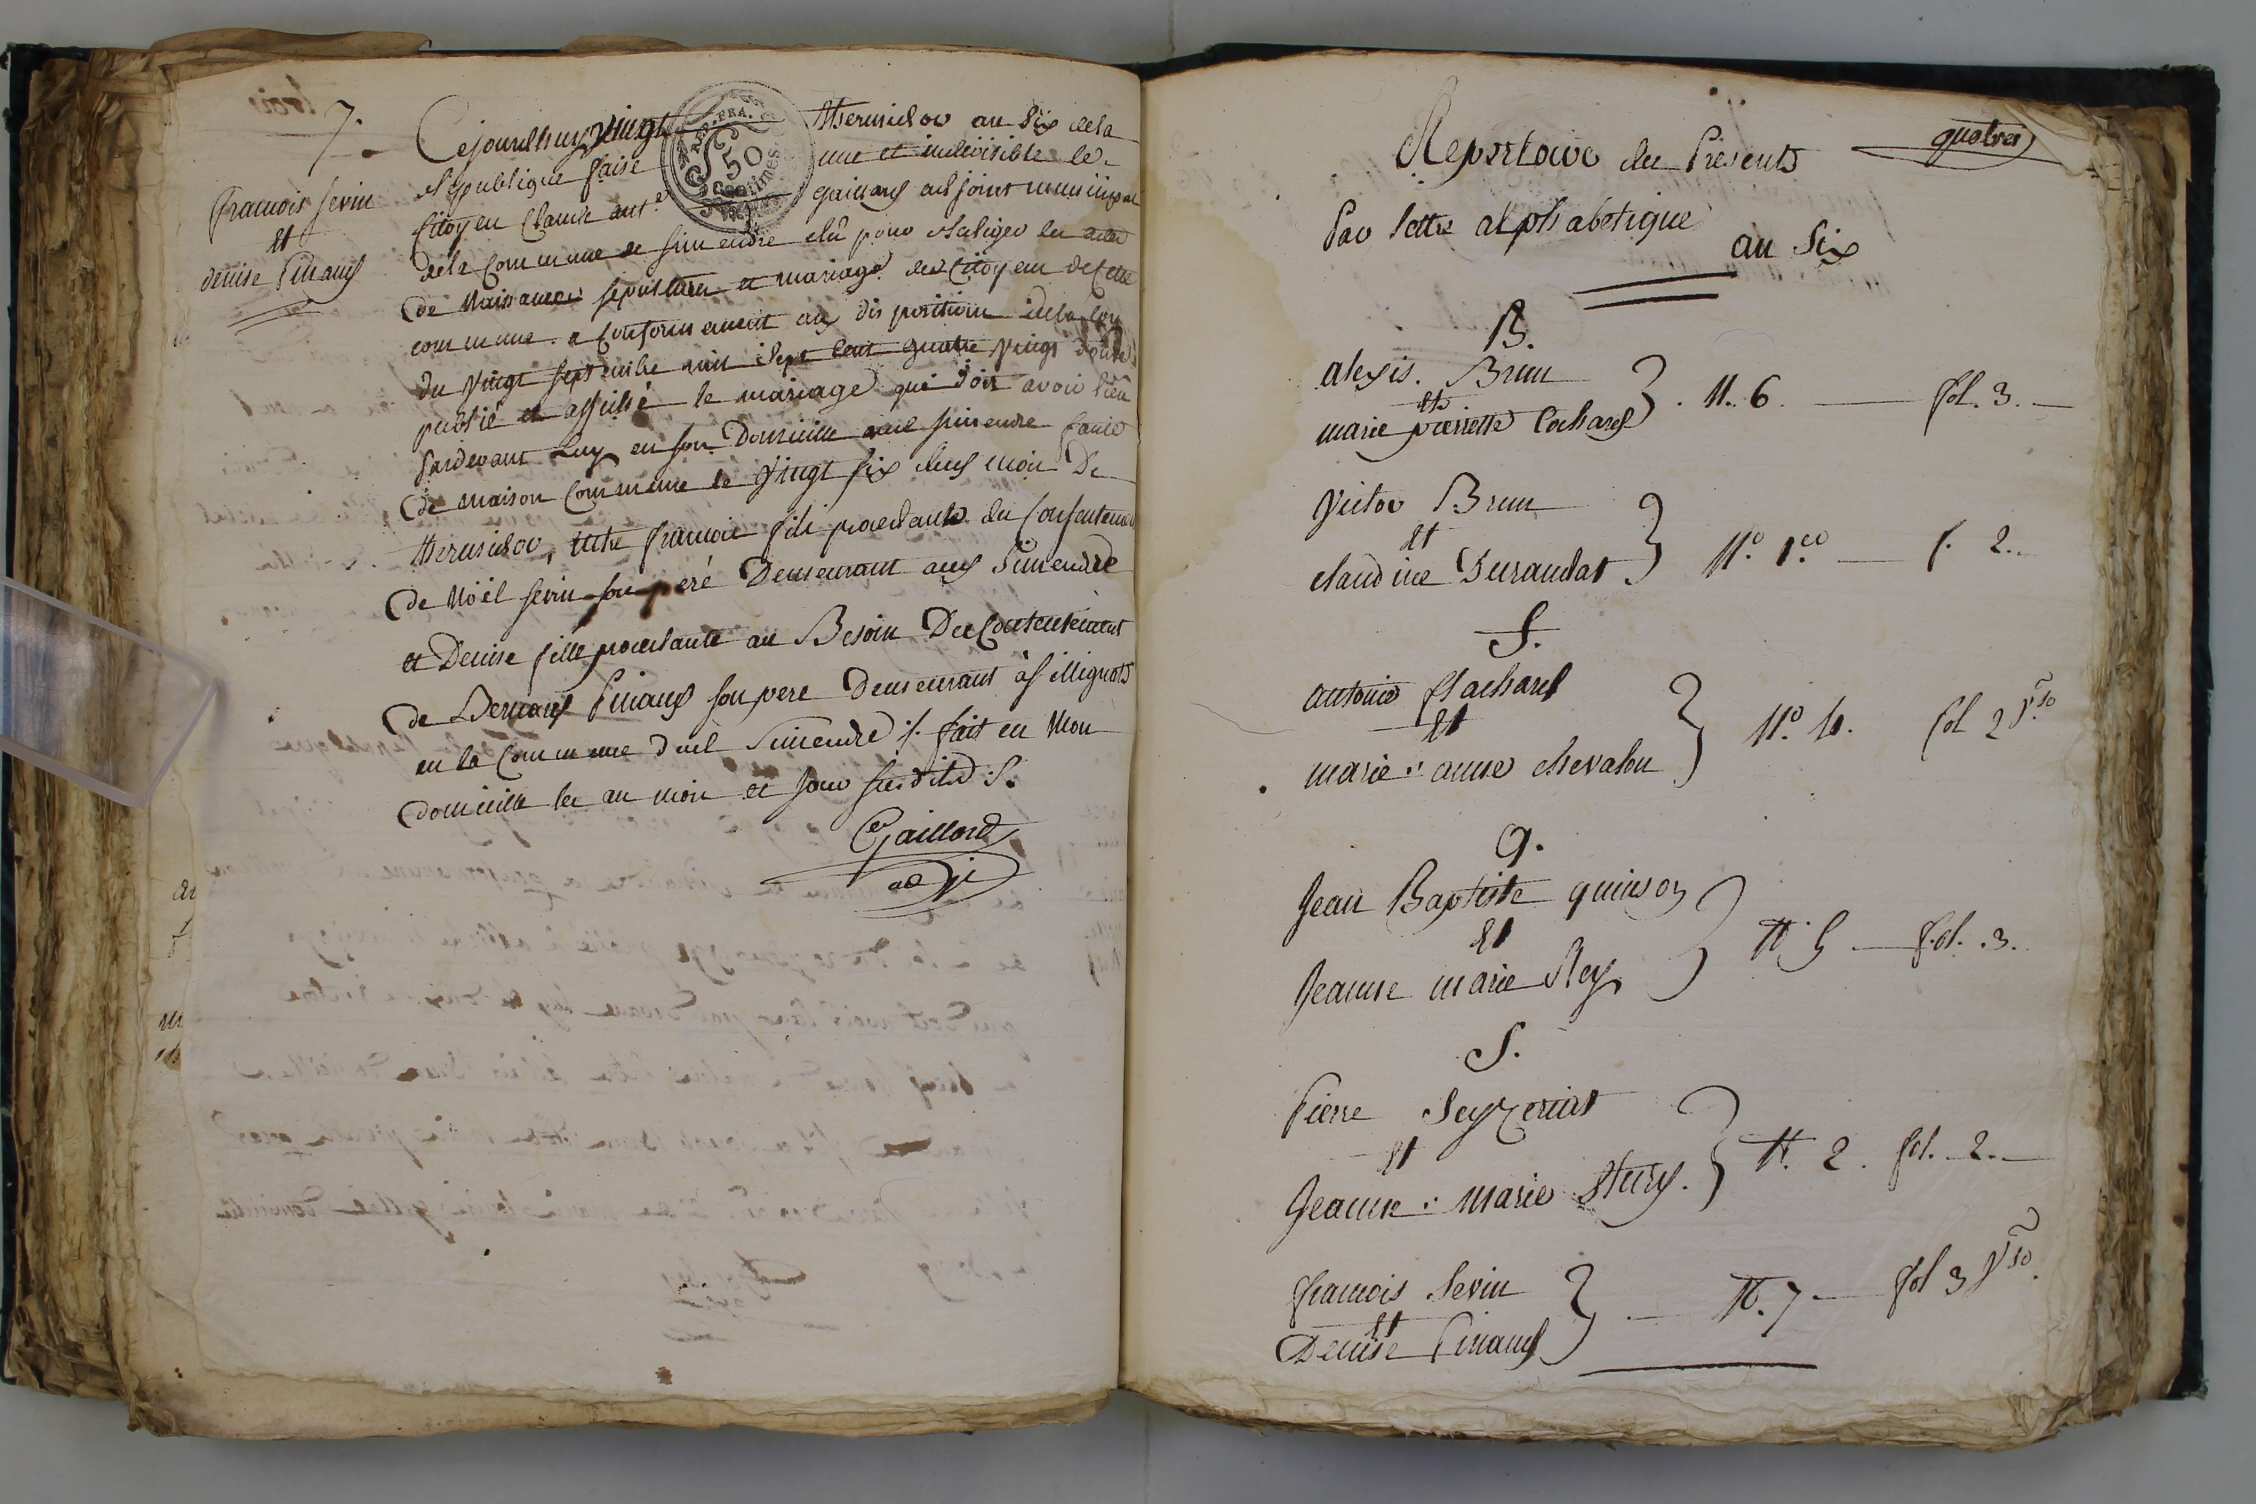 7.
francois sevin
et
denise Pinand
Cejourdhuy vingt Thermidor an Six dela
Republique une et indivisible le
Citoyen Claude ant.e Gaillard adjoint municipal
dela Commune de simendre élû pour Rediger les actes
de Naissances sepulture et mariage des Citoyens de Cette
commune. a Conformement aux dispositions dela Loy
du vingt septembre mil sept Cent quatre vingt douze
publié et affiché le mariage qui doit avoir lieu
Pardevant Luy en son Domicille aud simendre faute
de maison Commune le vingt six dud mois De
Thermidor, entre francois fils procedants du Consentement
de Noël sevin son pere Demeurant aud Simendre
et Denise fille procedante au Besoin Du Contentement
de Bernard Pinand son pere Demeurant à fillignols
en la Commune dud Simendre /. fait en Mon
domicille les an mois et jour susdits /.
Gaillard
adj
REP. FRA.
50
Centimes
quatres
Repertoire des Présents
Par lettre alphabetique
an Six
B.
alexis. Brun
et
marie pierrette Cochard
N. 6. fol. 3.
Victor Brun
et
claudine Durandat
N.o 1.er f. 2.
f.
antoine flachard
et
marie anne chevalon
N.o 4. fol 2 v.so
q.
Jean Baptiste quinson
et
Jeanne marie Rey
N. 5 fol. 3.
S.
Pierre Seyzeriat
et
Jeanne marie
N. 2. fol. 2.
francois Sevin
et
Denise Pinand
N. 7 fol 3 v.so